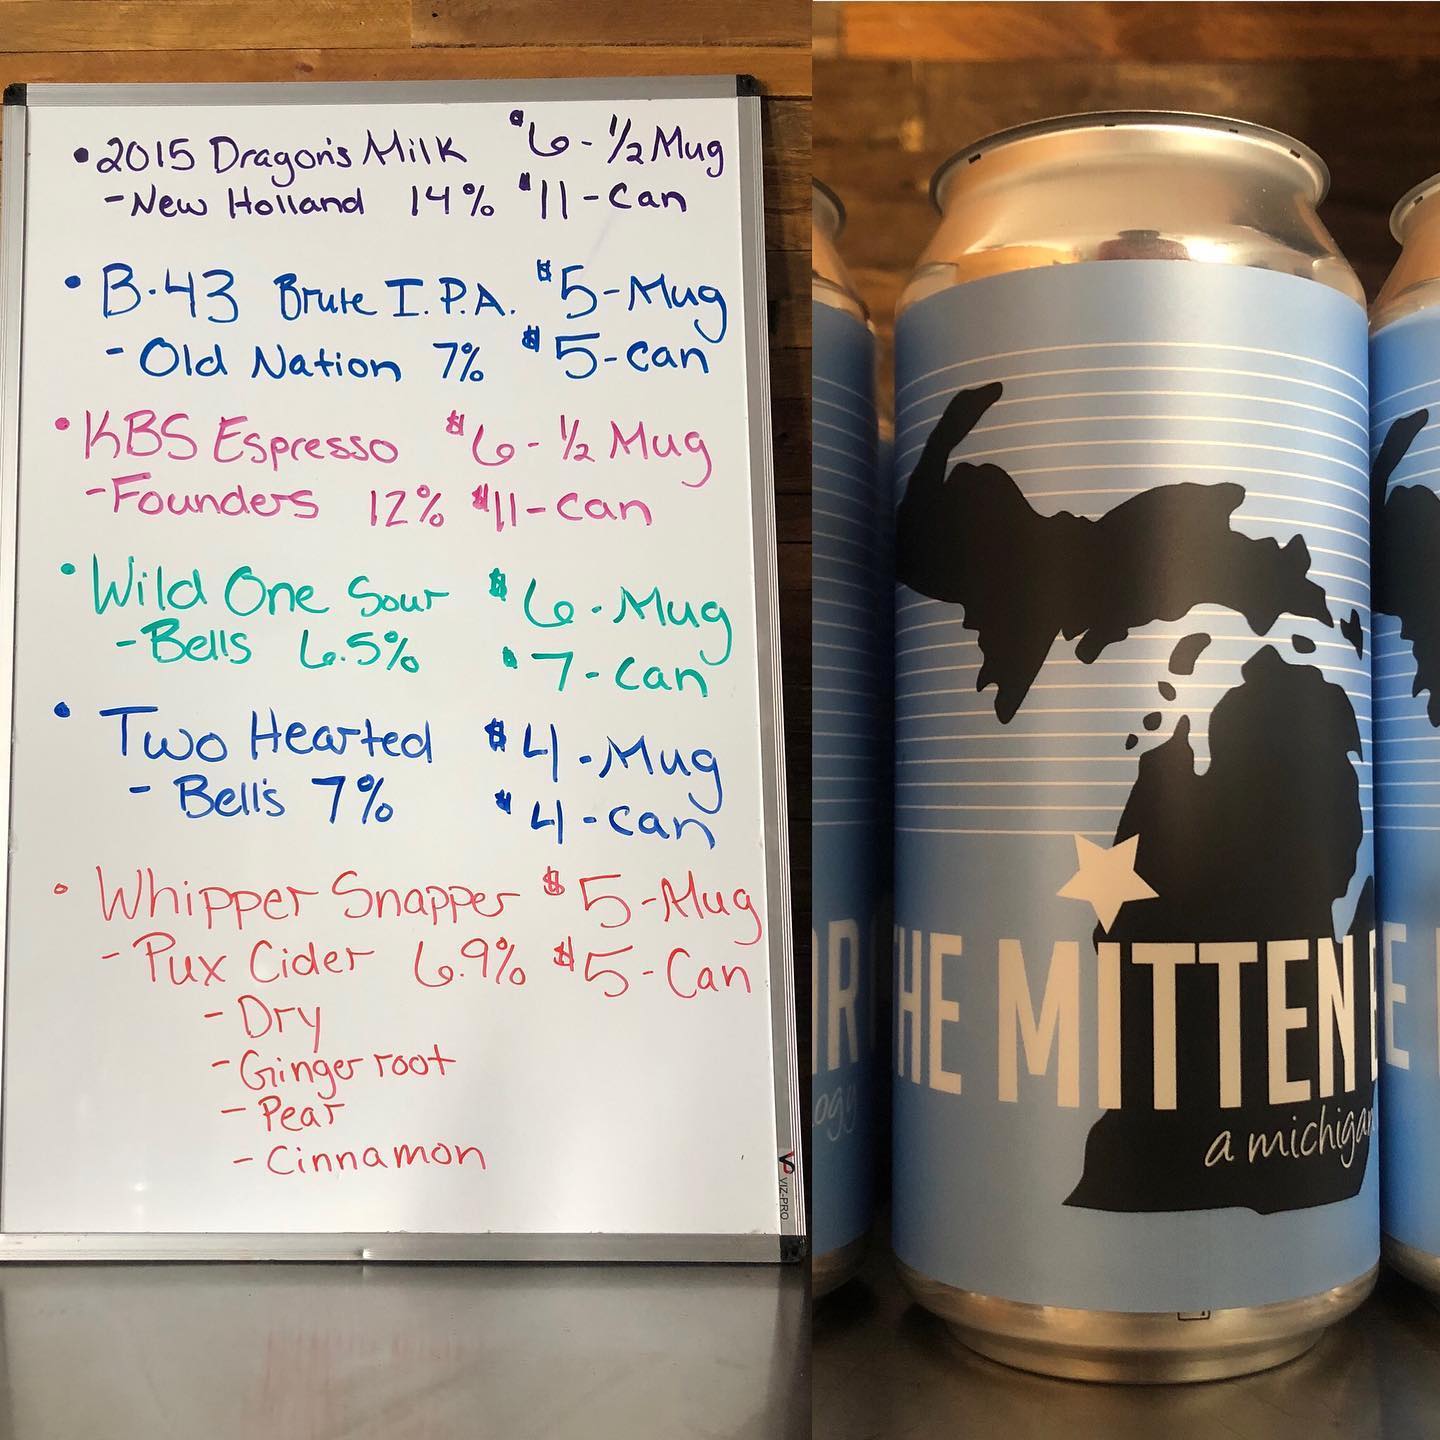 • 2015 Dragon's Milk $6 - 1/2 Mug
- New Holland 14% $11 - Can
• B-43 Brute I.P.A. $5 - Mug
- Old Nation 7% $5 - Can
• KBS Espresso $6 - 1/2 Mug
- Founders 12% $11 - Can
• Wild One Sour $6 - Mug
- Bells 6.5% $7 - Can
• Two Hearted $4 - Mug
- Bell's 7% $4 - Can
• Whipper Snapper $5 - Mug
- Pux Cider 6.9% $5 - Can
- Dry
- Ginger root
- Pear
- Cinnamon
VIZ-PRO
THE MITTEN
a michigan